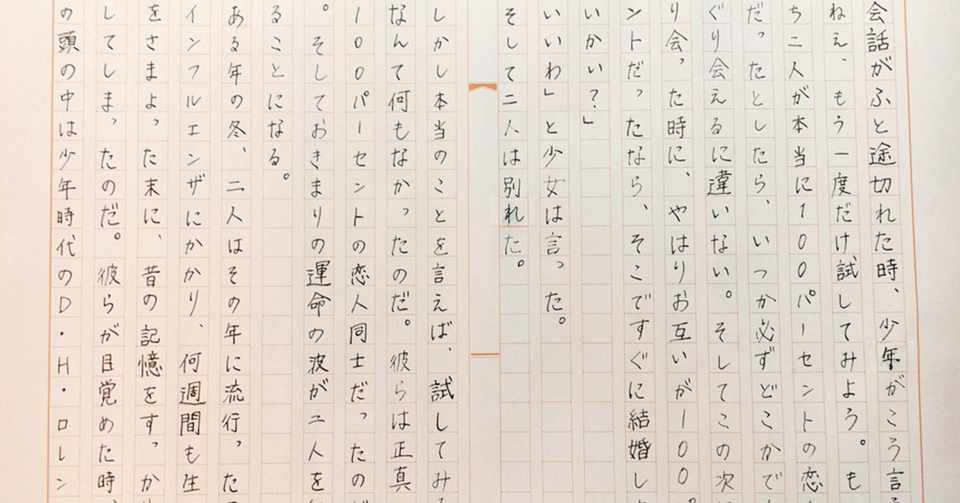 会話がふと途切れた時、少年がこう言
ねえ、もう一度だけ試してみよう。も
ち二人が本当に100パーセントの恋
だったとしたら、いつか必ずどこかで
ぐり会えるに違いない。そしてこの次に
り会った時に、やはりお互いが100
ントだったなら、そこですぐに結婚し
いかい？」
いいわ」と少女は言った。
そして二人は別れた。
しかし本当のことを言えば、試してみ
なんて何もなかったのだ。彼らは正真
100パーセントの恋人同士だったの
。そしておきまりの運命の波が二人を
ることになる。
ある年の冬、二人はその年に流行った
インフルエンザにかかり、何週間も生
をさまよった末に、昔の記憶をすっか
してしまったのだ。彼らが目覚めた時、
の頭の中は少年時代のD・H・ロレン